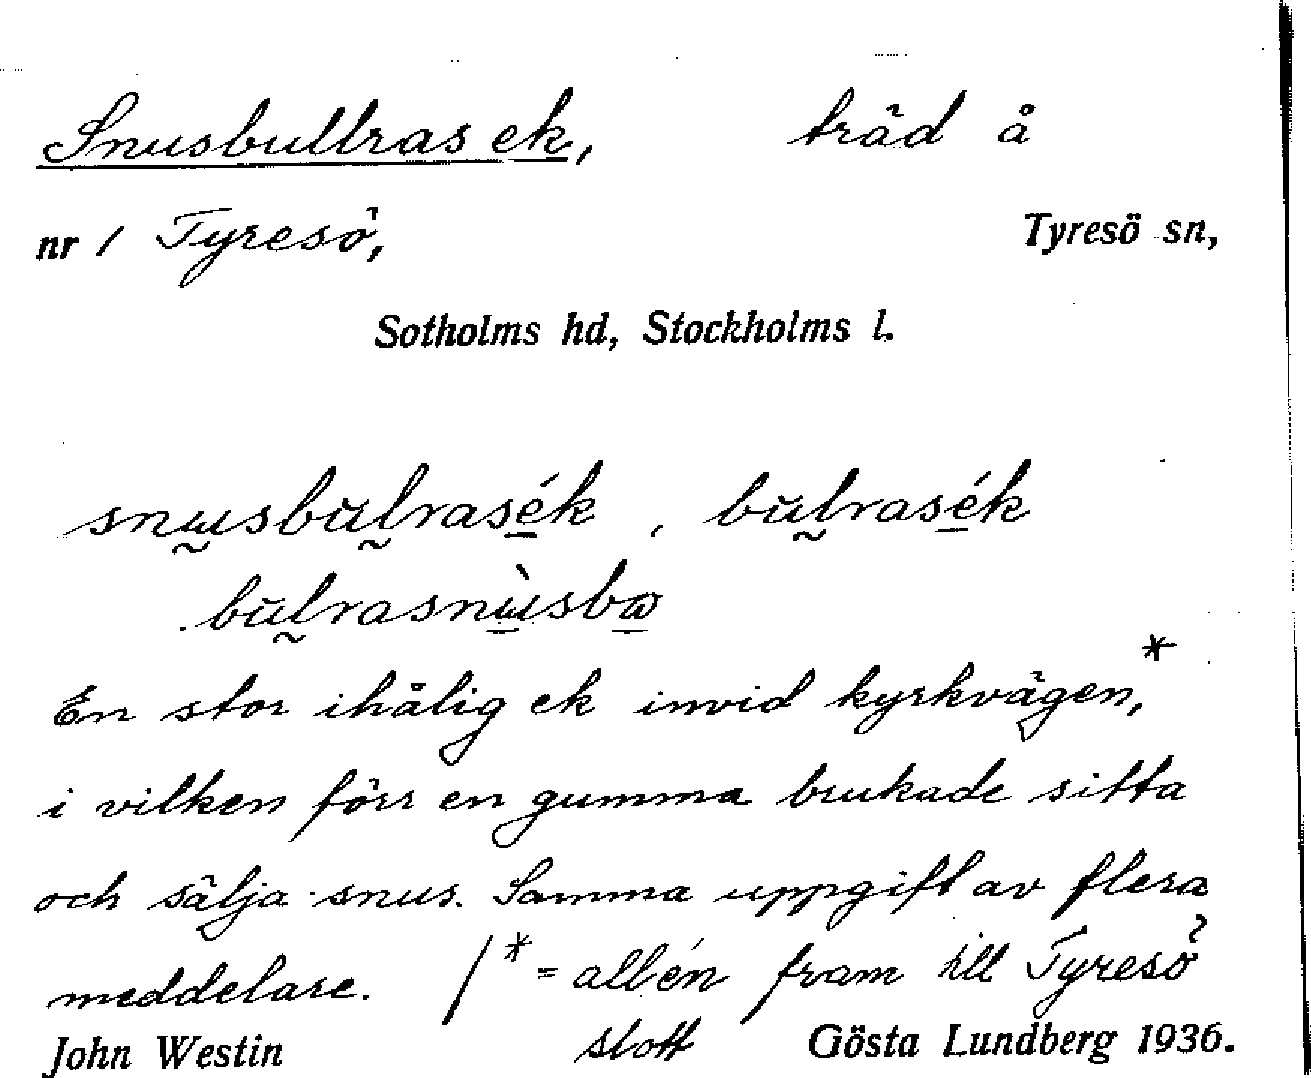 Snusbullras ek, träd å
nr 1 Tyresö, Tyresö sn,
Sotholms hd, Stockholms l.
snusbulrasék, bulrasék
bulrasnùsbɷ
En stor ihålig ek invid kyrkvägen,*
i vilken förr en gumma brukade sitta
och sälja snus. Samma uppgift av flera
meddelare. /* = allén fram till Tyresö
slott
John Westin Gösta Lundberg 1936.